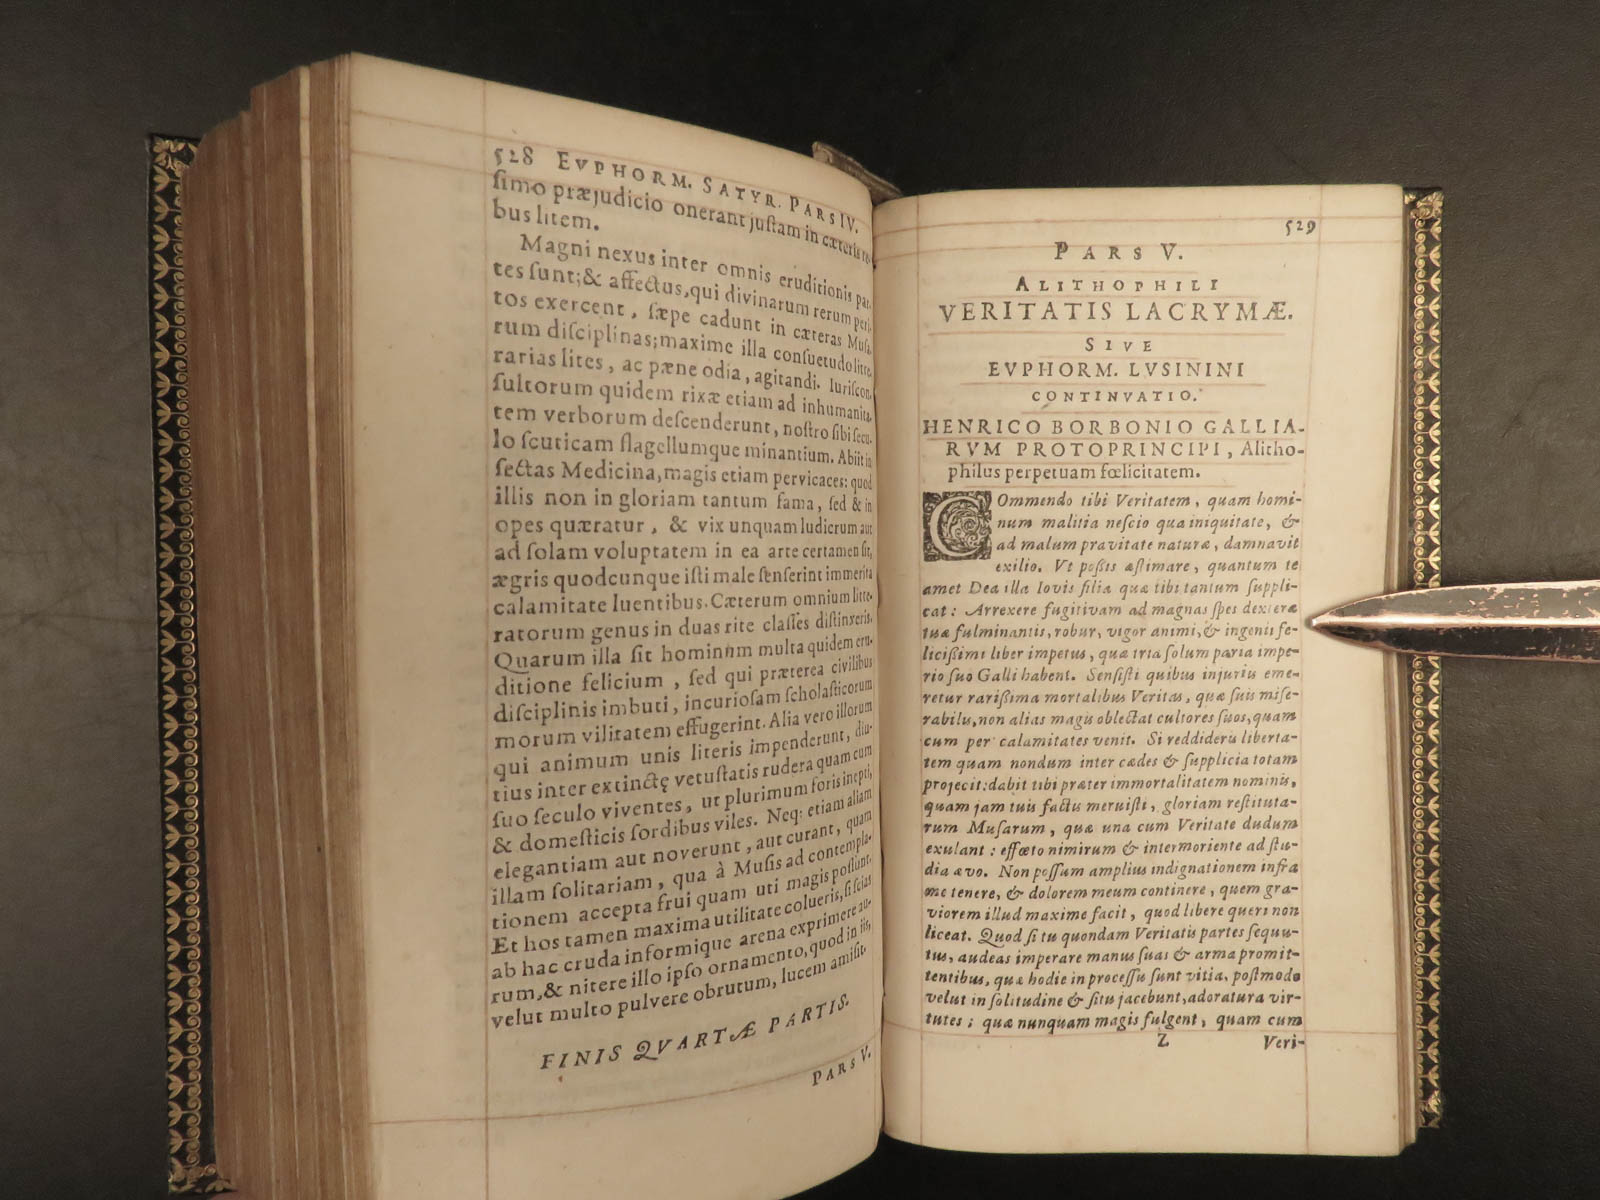 528 EVPHORM. SATYR. PARS IV.
ſimo præjudicio onerant juſtam in cæteris
bus litem.
Magni nexus inter omnis eruditionis par-
tes ſunt; & affectus, qui divinarum rerum peri-
tos exercent, ſæpe cadunt in cæteras Muſa-
rum diſciplinas; maxime illa conſuetudo litte-
rarias lites, ac pæne odia, agitandi. Iuriſcon-
ſultorum quidem rixæ etiam ad inhumanita-
tem verborum deſcenderunt, noſtro ſibi ſecu-
lo ſcuticam flagellumque minantium. Abiit in
ſectas Medicina, magis etiam pervicaces: quod
illis non in gloriam tantum fama, ſed & in
opes quæratur, & vix unquam ludicrum aut
ad ſolam voluptatem in ea arte certamen ſit,
ægris quodcunque iſti male ſenſerint immerita
calamitate luentibus. Cæterum omnium litte-
ratorum genus in duas rite claſſes diſtinxeris.
Quarum illa ſit hominum multa quidem eru-
ditione felicium, ſed qui præterea civilibus
diſciplinis imbuti, incurioſam ſcholaſticorum
morum vilitatem effugerint. Alia vero illorum
qui animum unis literis impenderunt, diu-
tius inter extinctę vetuſtatis rudera quam cum
ſuo ſeculo viventes, ut plurimum foris inepti,
& domeſticis ſordibus viles. Neq; etiam aliam
elegantiam aut noverunt, aut curant, quam
illam ſolitariam, qua à Muſis ad contempla-
tionem accepta frui quam uti magis poſſunt.
Et hos tamen maxima utilitate colueris, ſi ſcias
ab hac cruda informique arena exprimere au-
rum, & nitere illo ipſo ornamento, quod in iis,
velut multo pulvere obrutum, lucem amiſit.
FINIS QVARTÆ PARTIS.
PARS V.
529
PARS V.
ALITHOPHILI
VERITATIS LACRYMÆ.
SIVE
EVPHORM. LVSININI
CONTINVATIO.
HENRICO BORBONIO GALLIA-
RVM PROTOPRINCIPI, Alitho-
philus perpetuam fœlicitatem.
COmmendo tibi Veritatem, quam homi-
num malitia neſcio qua iniquitate, &
ad malum pravitate naturæ, damnavit
exilio. Vt poſſis æſtimare, quantum te
amet Dea illa Iovis filia quæ tibi tantum ſuppli-
cat: Arrexere fugitivam ad magnas ſpes dexteræ
tuæ fulminantis, robur, vigor animi, & ingenii fe-
liciſſimi liber impetus, quæ tria ſolum paria impe-
rio ſuo Galli habent. Senſiſti quibus injuriis eme-
retur rariſſima mortalibus Veritas, quæ ſuis miſe-
rabilis, non alias magis oblectat cultores ſuos, quam
cum per calamitates venit. Si reddideris liberta-
tem quam nondum inter cædes & ſupplicia totam
projecit: dabit tibi præter immortalitatem nominis,
quam jam tuis factis meruiſti, gloriam reſtituta-
rum Muſarum, quæ una cum Veritate dudum
exulant: effœto nimirum & intermoriente ad ſtu-
dia ævo. Non poſſum amplius indignationem infra
me tenere, & dolorem meum continere, quem gra-
viorem illud maxime facit, quod libere queri non
liceat. Quod ſi tu quondam Veritatis partes ſequu-
tus, audeas imperare manus ſuas & arma promit-
tentibus, quæ hodie in proceſſu ſunt vitia, poſtmodo
velut in ſolitudine & ſitu jacebunt, adoratura vir-
tutes; quæ nunquam magis fulgent, quam cum
Z Veri-